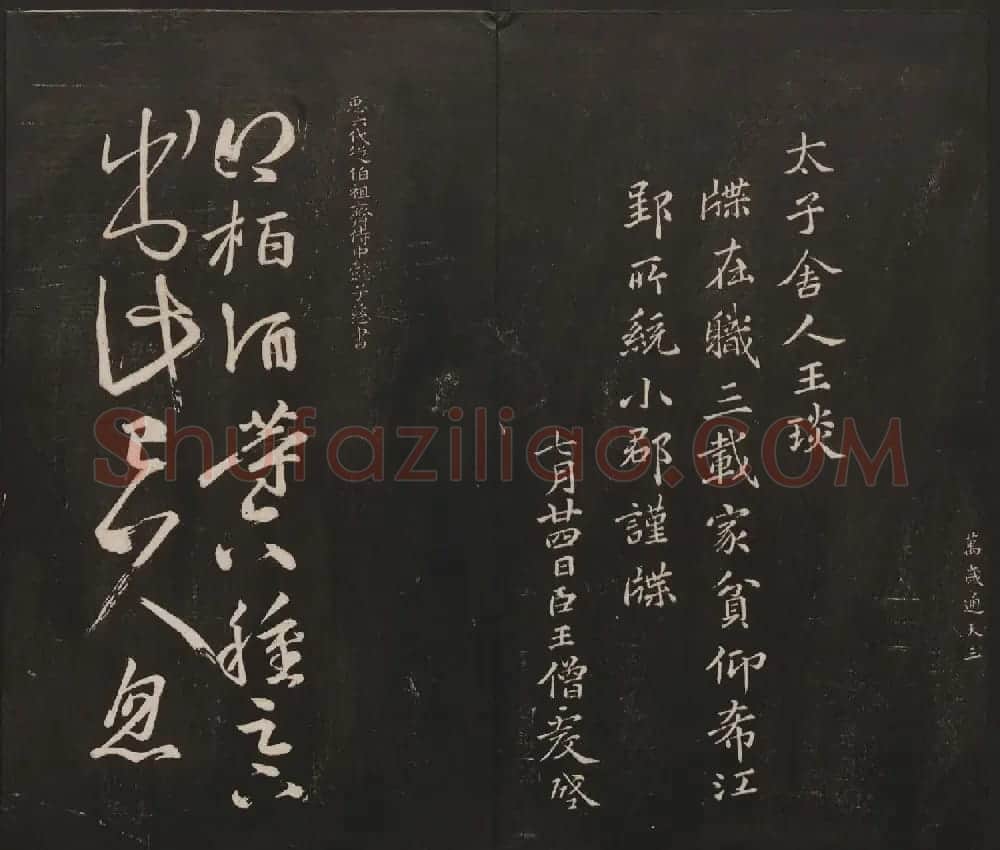 萬歲通天三
太子舍人王琰
牒在職三載家貧仰希江
郢所統小郡謹牒
七月廿四日臣王僧虔啓
六代從伯祖齊侍中 子慈書
得柏酒等六種足下
出此已久忽
Shufaziligo.COM